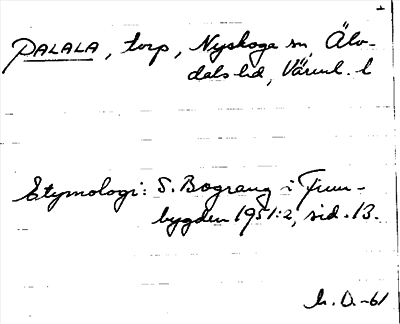 PALALA, torp, Nyskoga sn, Älv-
dals hd, Värml. l
Etymologi: S. Bograng i Finn-
bygden 1951:2, sid. 13.
h. D. -61